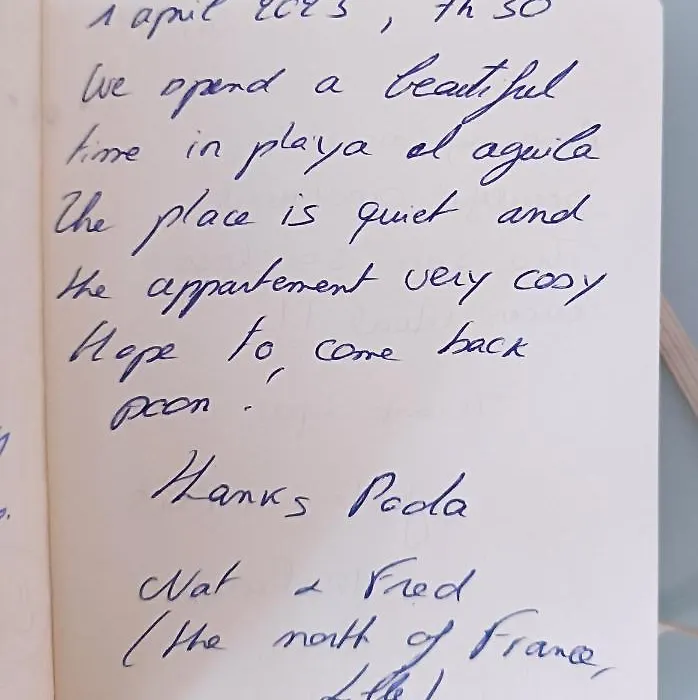 1 april 2023, 7h50
We spend a beautiful
time in playa el aguila
The place is quiet and
the appartement very cosy
Hope to come back
soon !
Thanks Paola
Nat & Fred
(the north of France,
Lille)